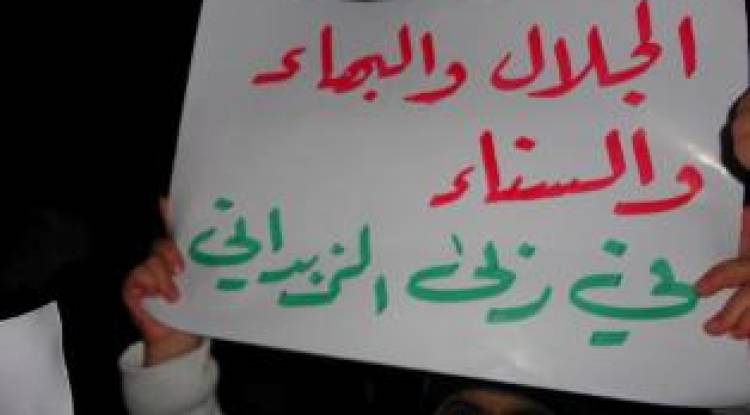 الجلال والبهاء
والسناء
في ربى الزبداني